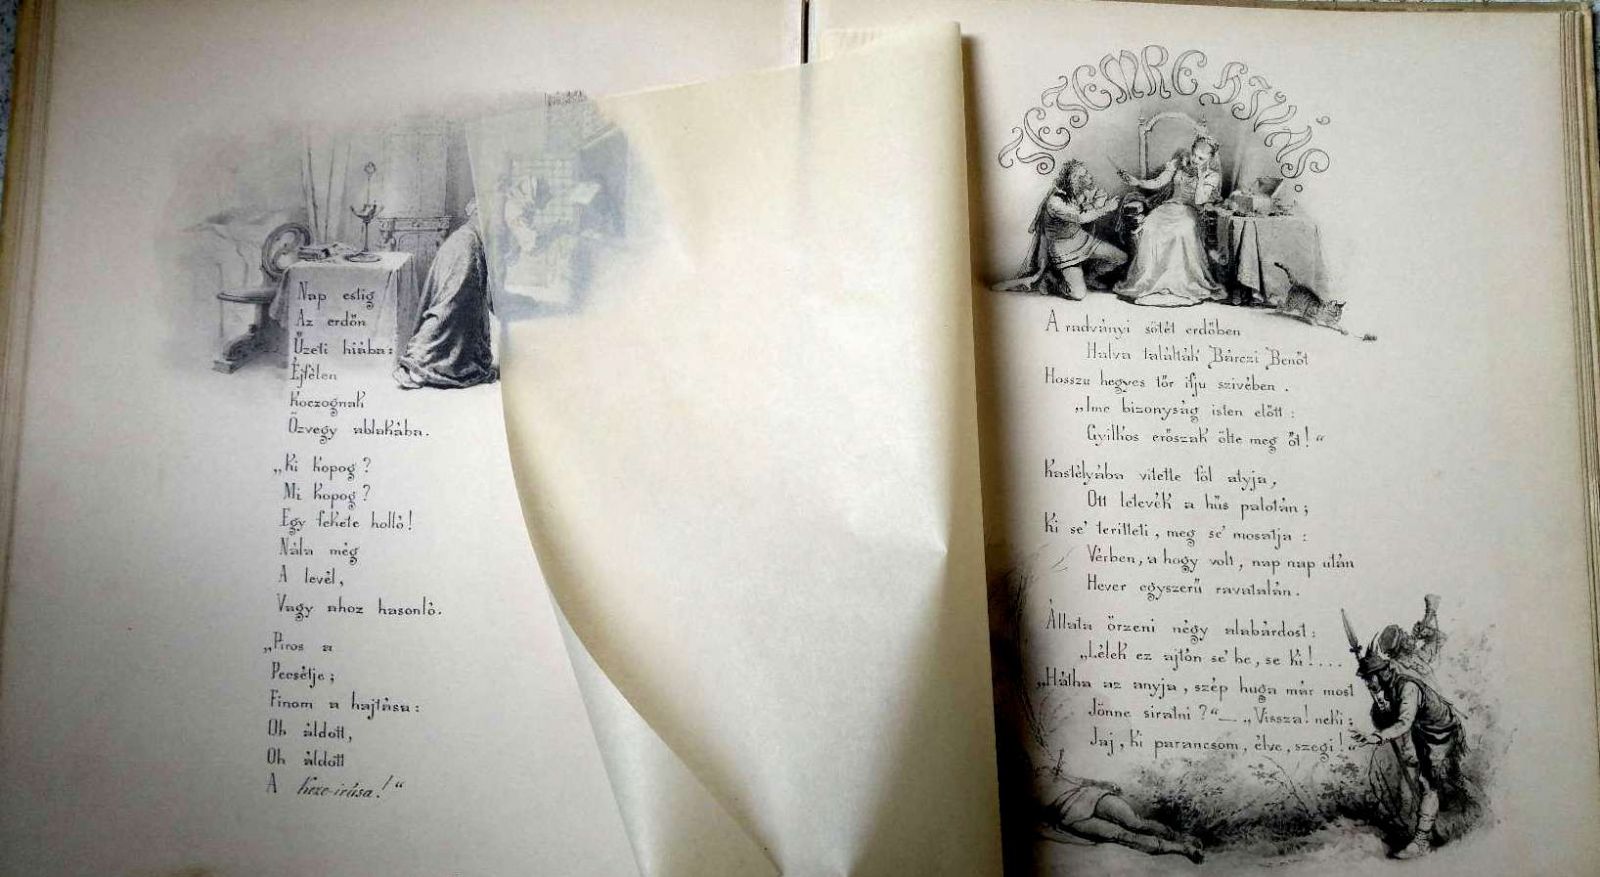 Nap estig
Az erdőn
Űzeti hiába:
Éjfélen
Koczognak
Özvegy ablakába.
„Ki kopog?
Mi kopog?
Egy fekete holló!
Nála még
A levél,
Vagy ahoz hasonló.
„Piros a
Pecsétje;
Finom a hajtása:
Oh áldott,
Oh áldott
A keze-irása!“
TETEMRE HÍVÁS.
A radványi sötét erdőben
Halva találták Bárczi Benőt
Hosszu hegyes tőr ifju szivében.
„Ime bizonyság isten előtt:
Gyilkos erőszak ölte meg őt!“
Kastélyába vitette föl atyja,
Ott letevék a hűs palotán;
Ki se' teritteti, meg se' mosatja:
Vérben, a hogy volt, nap nap után
Hever egyszerű ravatalán.
Állata őrzeni négy alabárdost:
„Lélek ez ajtón se' be, se ki!....
„Hátha az anyja, szép huga már most
Jönne siratni?“ — „Vissza! neki;
Jaj, ki parancsom, élve, szegi!“